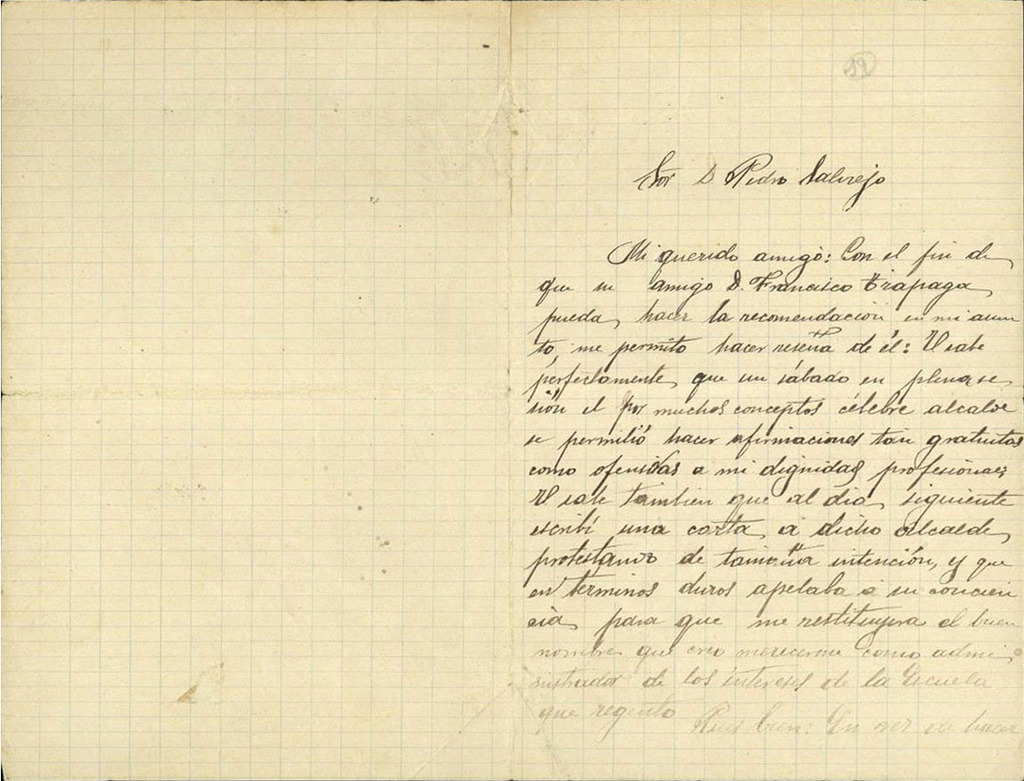 19
Sor D Pedro Salviejo
Mi querido amigo: Con el fin de
que su amigo D. Francisco Trapaga
pueda hacer la recomendación en mi asun
to, me permito hacer reseña de él: V sabe
perfectamente que un sábado en plena se
sión el por muchos conceptos célebre alcalde
se permitió hacer afirmaciones tan gratuitas
como ofensivas a mi dignidad profesional;
V sabe tambien que al dia siguiente
escribí una carta á dicho alcalde
protestando de tamaña intención, y que
en terminos duros apelaba á su concien
cia para que me restituyera el buen
nombre que creo merecerme como admi
nistrador de los intereses de la Escuela
que regento
Pues bien: En vez de hacer